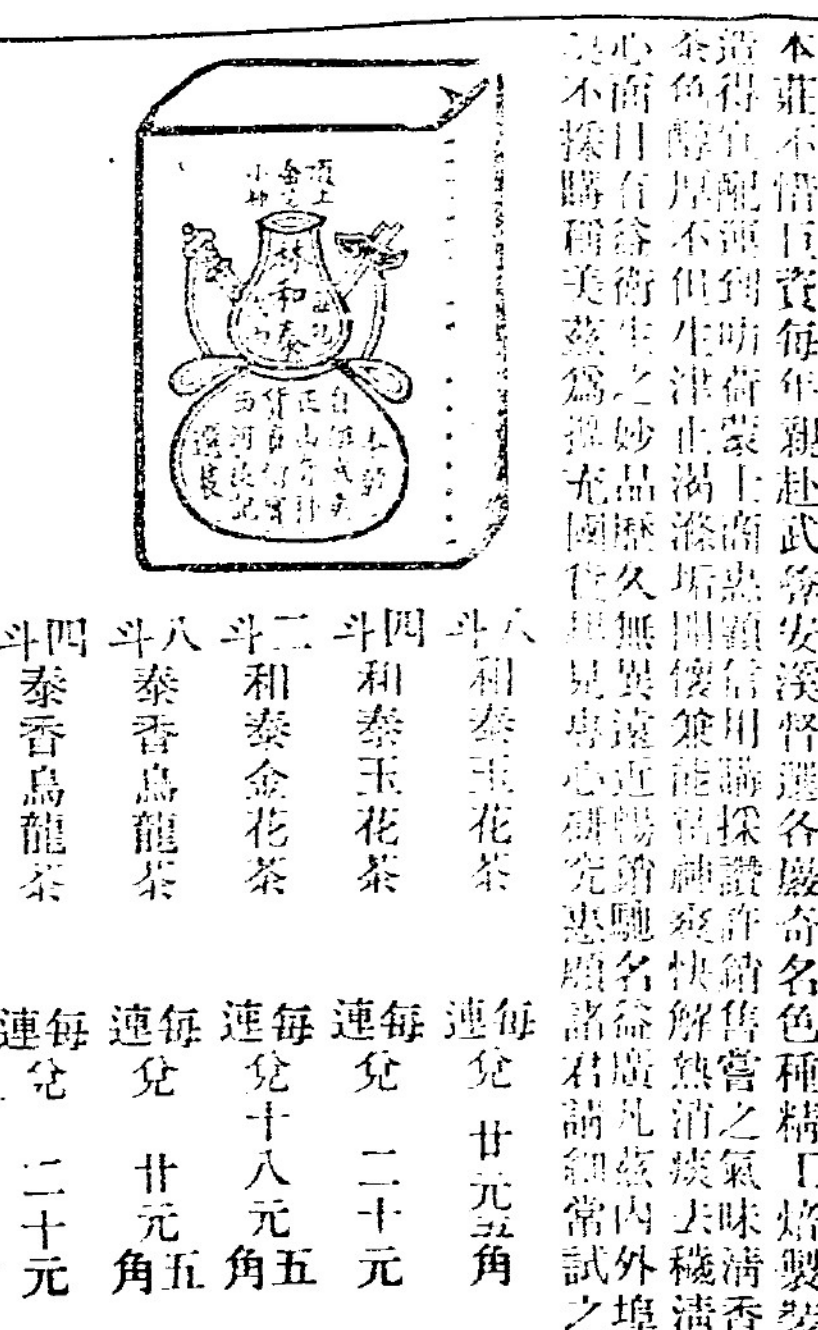 本莊不惜巨資每年親赴武彝安溪督選各巖奇名色種精工焙製裝
造得宜配運到叻荷蒙士商惠顧信用購採讚許銷售嘗之氣味清香
茶色醇厚不但生津止渴滌垢開懷兼能提神爽快解熱消痰去穢清
心面目有益衛生之妙品歷久無異遠近暢銷馳名益廣凡茲內外埠
不採購稱美茲為推充國貨起見專心研究惠顧諸君請細常試之
頂上
小種
林和泰
本號
自往武
正山奇種
貨真價實
西河茂記
選裝
八斗和泰玉花茶 每連兌廿元五角
四斗和泰玉花茶 每連兌二十元
二斗和泰金花茶 每連兌十八元五角
八斗泰香烏龍茶 每連兌廿元五角
四斗泰香烏龍茶 每連兌二十元